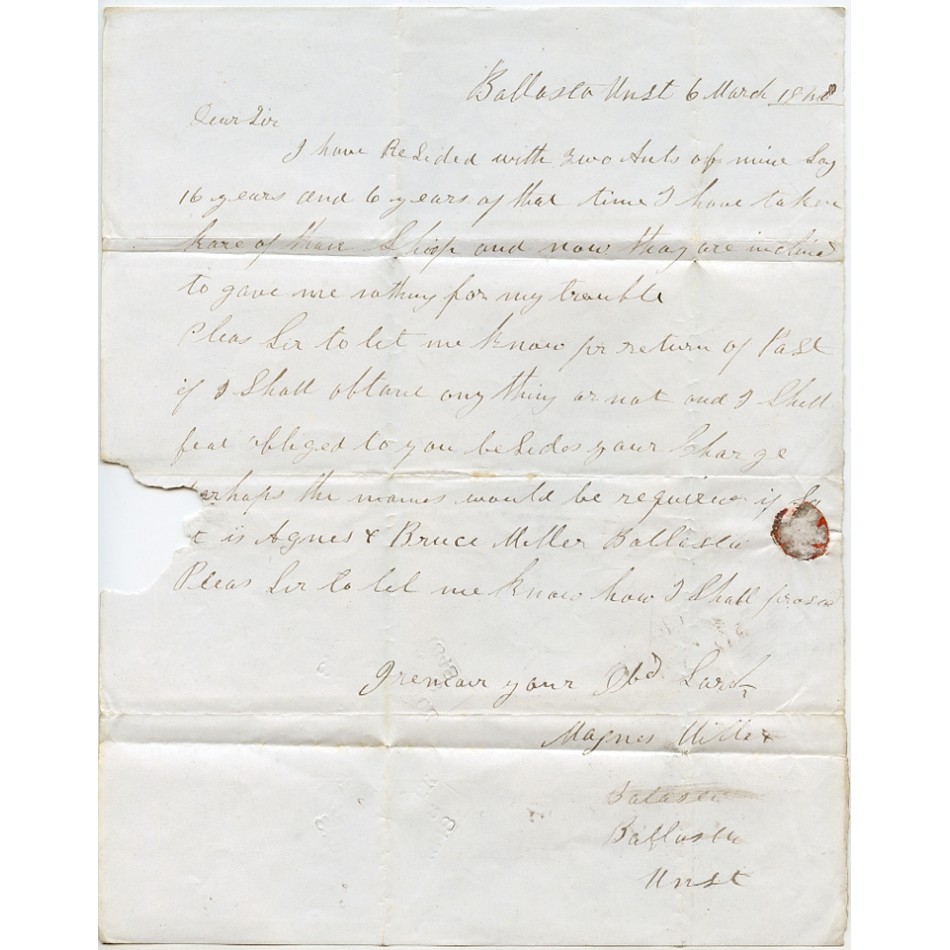 Ballasta Unst 6 March 1848
Dear Sir
I have Resided with two Ants of mine Say
16 years and 6 years of that time I have taken
kare of thare Shoop and now thay are inclined
to gave me nothing for my trouble
Pleas Sir to let me know pr return of Past
if I Shall obtane any thing or not and I Shall
feal obliged to you besides your Kharge
erhaps the names would be required if So
t is Agnes & Bruce Miller Ballasta
Pleas Sir to let me know how I Shall
I remain your Obd. Sarvt
Magnes Miller
Balasta
Ballasta
Unst